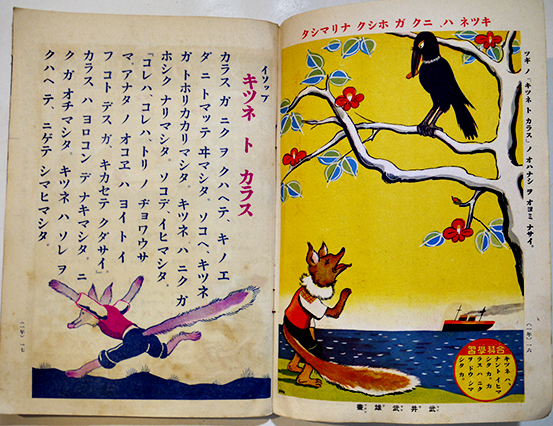 キツネ ハ、ニク ガ ホシク ナリマシタ
ツギ ノ 「キツネ ト カラス」 ノ オハナシ ヲ オヨミ ナサイ。
(一年) 一六
合科學習
キツネ ハ、
ナント イヒマ
シタ カ。カ
ラス ハ ニク
ヲ ドウ シマ
シタ カ。
武井武雄畫
イソップ
キツネ ト カラス
カラス ガ ニク ヲ クハヘテ、キ ノ エ
ダ ニ トマッテ ヰマシタ。ソコヘ、キツネ
ガ トホリカカリマシタ。キツネ ハ ニク ガ
ホシク ナリマシタ。ソコデ、イヒマシタ。
「コレハ、コレハ、トリ ノ ヂョワウサ
マ、アナタ ノ オコヱ ハ ヨイ ト イ
フ コト デス ガ、キカセテ クダサイ」
カラス ハ ヨロコン デ ナキマシタ。ニ
ク ガ オチマシタ。キツネ ハ ソレ ヲ
クハヘテ、ニゲテ シマヒマシタ。
(一年) 一七